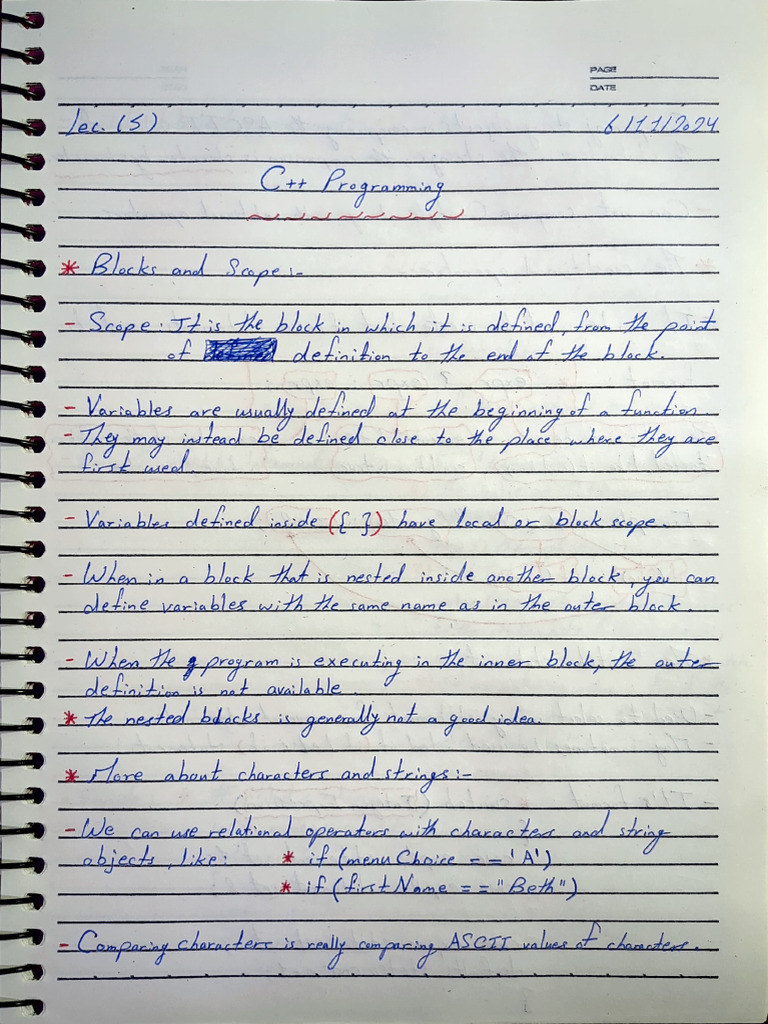 PAGE
DATE
Lec. (5) 6/11/2024
C++ Programming
* Blocks and Scope:-
- Scope: It is the block in which it is defined, from the point
of definition to the end of the block.
- Variables are usually defined at the beginning of a function.
- They may instead be defined close to the place where they are
first used.
- Variables defined inside ({ }) have local or block scope.
- When in a block that is nested inside another block, you can
define variables with the same name as in the outer block.
- When the program is executing in the inner block, the outer
definition is not available.
* The nested blocks is generally not a good idea.
* More about characters and strings:-
- We can use relational operators with characters and string
objects, like: * if (menuChoice == 'A')
* if (firstName == "Beth")
- Comparing characters is really comparing ASCII values of characters.